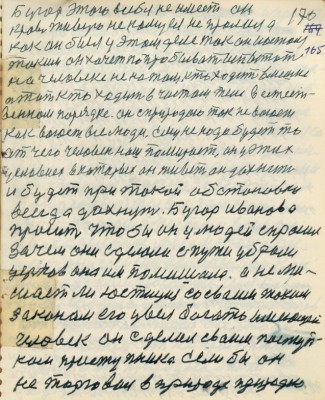 Бугор этого в себе не имеет он 170
природы живого не коснулся не проживал 757
как он был у этом деле так он и остался 165
таким он хочет попробывать испытать
на человеке не на том, кто ходит в мешке
а на том кто ходит в чистом теле в естест
венном порядке. он с природою так не воюет
как воюет все люди. Ему не надо будет то
от чего человек наш помирает, он у этих
условиях в которых он живет он дохнит
и будет при такой обстановки
всегда дохнуть. Бугор Иванова
просит, чтобы он у людей спросил
зачем они сделали с пути убрали
церков она им помешала. а не ме-
шает ли юстиция со своим таким
законом его увел богатъ имеющей
человек он сделал своим поступ-
ком приступника если бы он
не торговал в природе природою